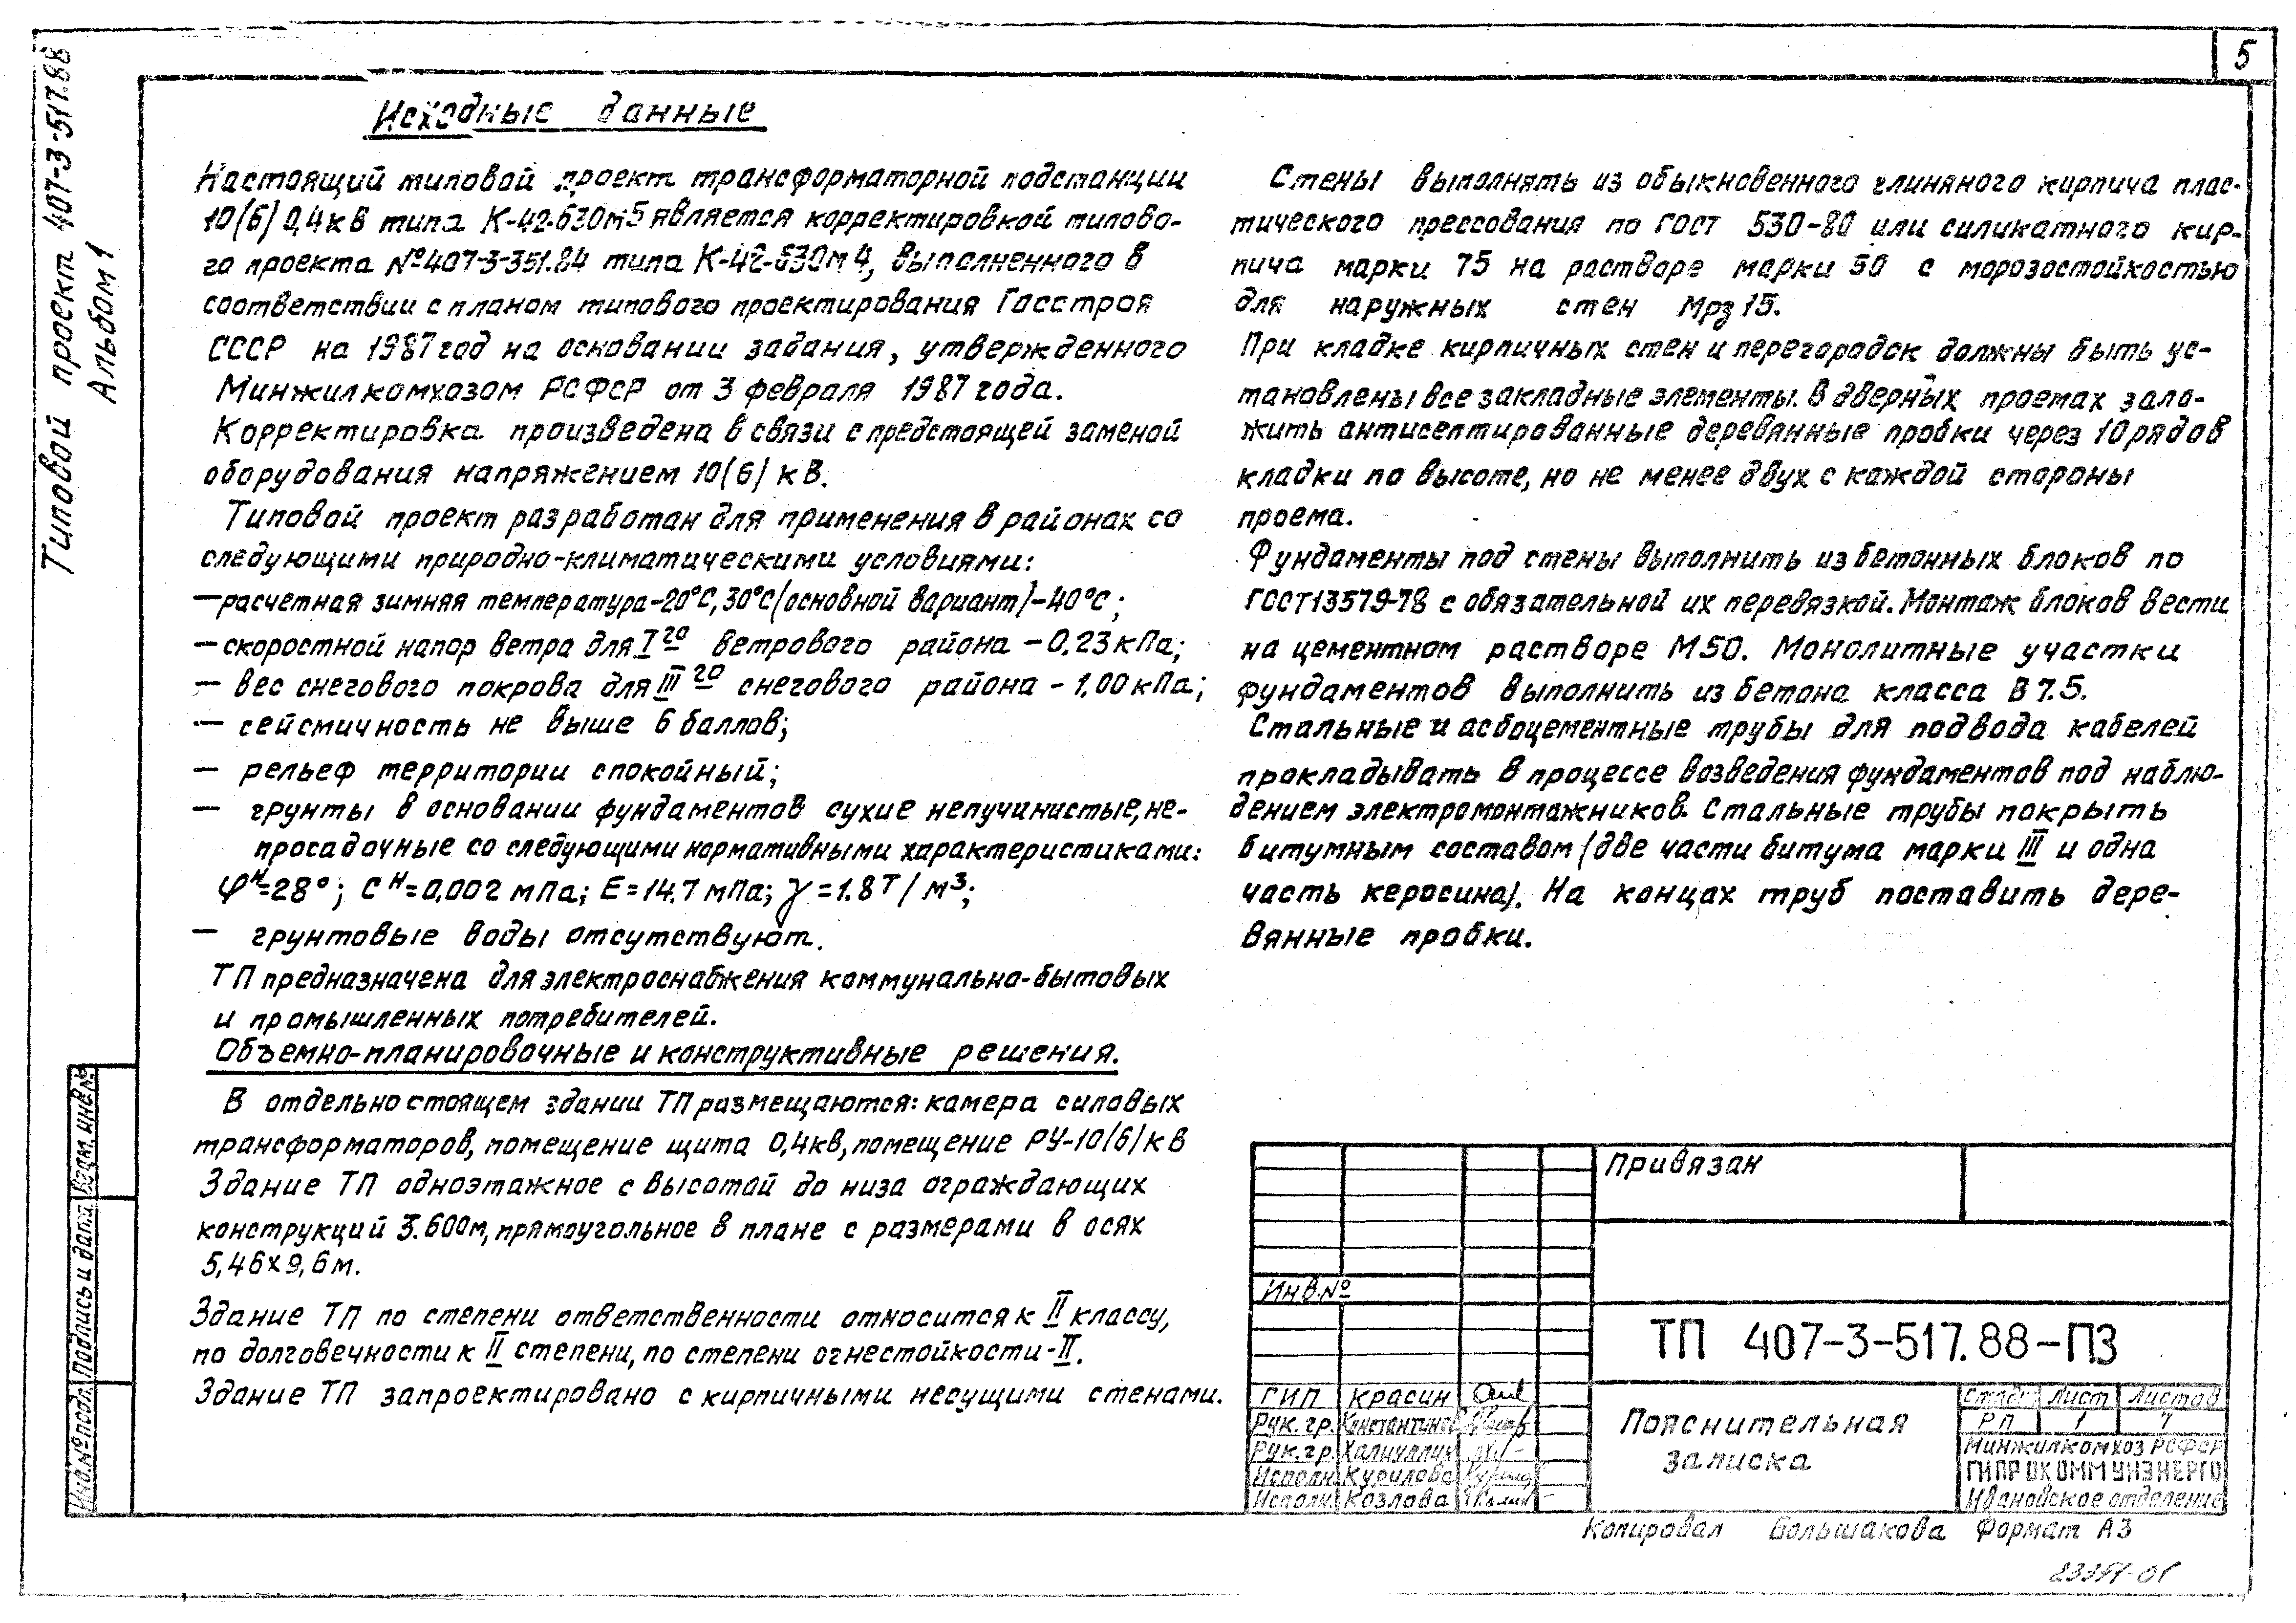 5
Типовой проект 407-3-517.88
Альбом 1
Исходные данные
Настоящий типовой проект трансформаторной подстанции
10(6) 0,4кВ типа К-42-630м5 является корректировкой типово-
го проекта №407-3-351.84 типа К-42-630м4, выполненного в
соответствии с планом типового проектирования Госстроя
СССР на 1987 год на основании задания, утвержденного
Минжилкомхозом РСФСР от 3 февраля 1987 года.
Корректировка произведена в связи с предстоящей заменой
оборудования напряжением 10(6) кВ.
Типовой проект разработан для применения в районах со
следующими природно-климатическими условиями:
—расчетная зимняя температура-20°С, 30°С (основной вариант)-40°С;
—скоростной напор ветра для Iго ветрового района - 0,23 кПа;
— вес снегового покрова для IIIго снегового района - 1,00 кПа;
— сейсмичность не выше 6 баллов;
— рельеф территории спокойный;
— грунты в основании фундаментов сухие непучинистые, не-
просадочные со следующими нормативными характеристиками:
φн=28°; Сн=0,002 мПа; Е=14.7 мПа; γ=1.8Т/м3;
— грунтовые воды отсутствуют.
ТП предназначена для электроснабжения коммунально-бытовых
и промышленных потребителей.
Объемно-планировочные и конструктивные решения.
В отдельно стоящем здании ТП размещаются: камера силовых
трансформаторов, помещение щита 0,4кв, помещение РУ-10(6)кВ
Здание ТП одноэтажное с высотой до низа ограждающих
конструкций 3.600м, прямоугольное в плане с размерами в осях
5,46х9,6м.
Здание ТП по степени ответственности относится к II классу,
по долговечности к II степени, по степени огнестойкости-II.
Здание ТП запроектировано с кирпичными несущими стенами.
Стены выполнять из обыкновенного глиняного кирпича плас-
тического прессования по ГОСТ 530-80 или силикатного кир-
пича марки 75 на растворе марки 50 с морозостойкостью
для наружных стен Мрз 15.
При кладке кирпичных стен и перегородок должны быть ус-
тановлены все закладные элементы. В дверных проемах зало-
жить антисептированные деревянные пробки через 10 рядов
кладки по высоте, но не менее двух с каждой стороны
проема.
Фундаменты под стены выполнить из бетонных блоков по
ГОСТ13579-78 с обязательной их перевязкой. Монтаж блоков вести
на цементном растворе М50. Монолитные участки
фундаментов выполнить из бетона класса В7.5.
Стальные и асбоцементные трубы для подвода кабелей
прокладывать в процессе возведения фундаментов под наблю-
дением электромонтажников. Стальные трубы покрыть
битумным составом (две части битума марки III и одна
часть керосина). На концах труб поставить дере-
вянные пробки.
Привязан
Инв.№
ТП 407-3-517.88-ПЗ
Пояснительная
записка
Стадия Лист Листов
РП 1 7
Минжилкомхоз РСФСР
ГИПРОКОММУНЭНЕРГО
Ивановское отделение
ГИП Красин
Рук.гр. Константинов
Рук.гр. Халиуллин
Исполн. Курилова
Исполн. Козлова
Взам. инв.№
Подпись и дата
Инв.№ подл.
Копировал Большакова Формат А3